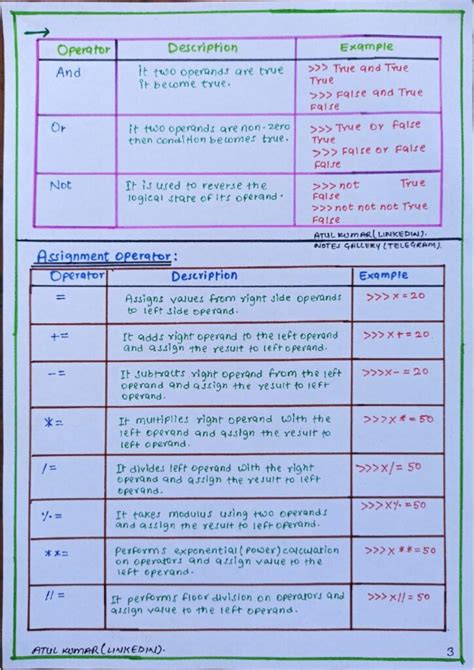 Operator Description Example
And It two operands are true >>> True and True
it become true. True
>>> False and True
False
Or it two operands are non-zero >>> True or False
then condition becomes true. True
>>> False or False
False
Not It is used to reverse the >>> not True
logical state of its operand. False
>>> not not not True
False
ATUL KUMAR (LINKEDIN).
NOTES GALLERY (TELEGRAM).
Assignment operator:
Operator Description Example
= Assigns values from right side operands >>> x = 20
to left side operand.
+= It adds right operand to the left operand >>> x + = 20
and assign the result to left operand.
-= It subtracts right operand from the left >>> x - = 20
operand and assign the result to left
operand.
*= It multiplies right operand with the >>> x * = 50
left operand and assign the result to
left operand.
/= It divides left operand with the right >>> x/= 50
operand and assign the result to left
operand.
%= It takes modulus using two operands >>> x%= 50
and assign the result to left operand.
**= Performs exponential (power) calculation >>> x **= 50
on operators and assign value to the
left operand.
//= It performs floor division on operators and >>> x//= 50
assign value to the left operand.
ATUL KUMAR (LINKEDIN).
3